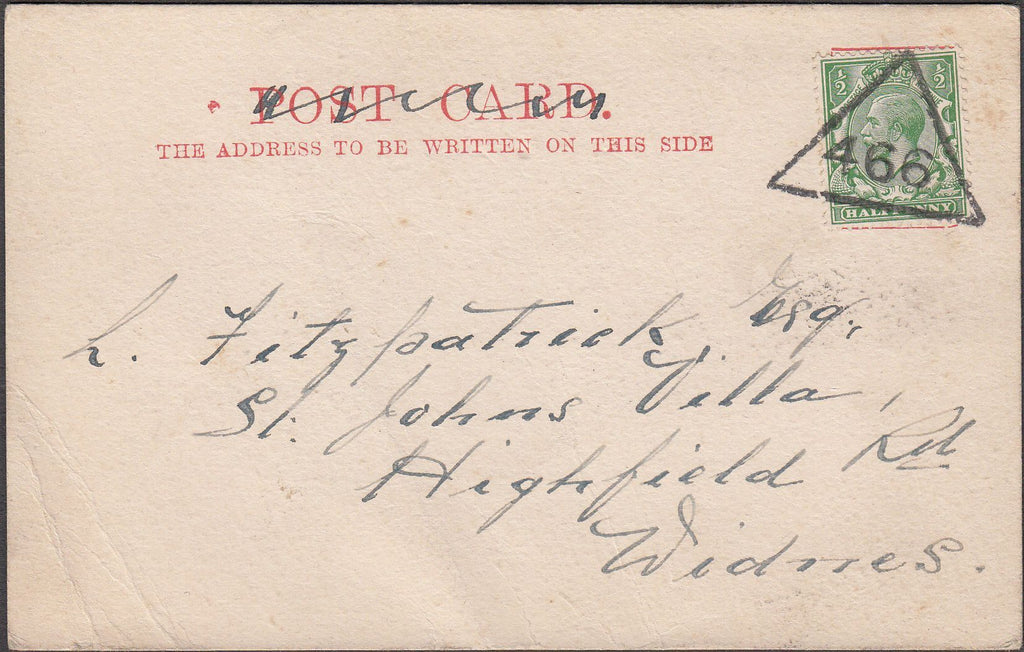 POST CARD.
THE ADDRESS TO BE WRITTEN ON THIS SIDE
½ ½
HALFPENNY
466
L. Fitzpatrick Esq,
St. Johns Villa,
Highfield Rd
Widnes.